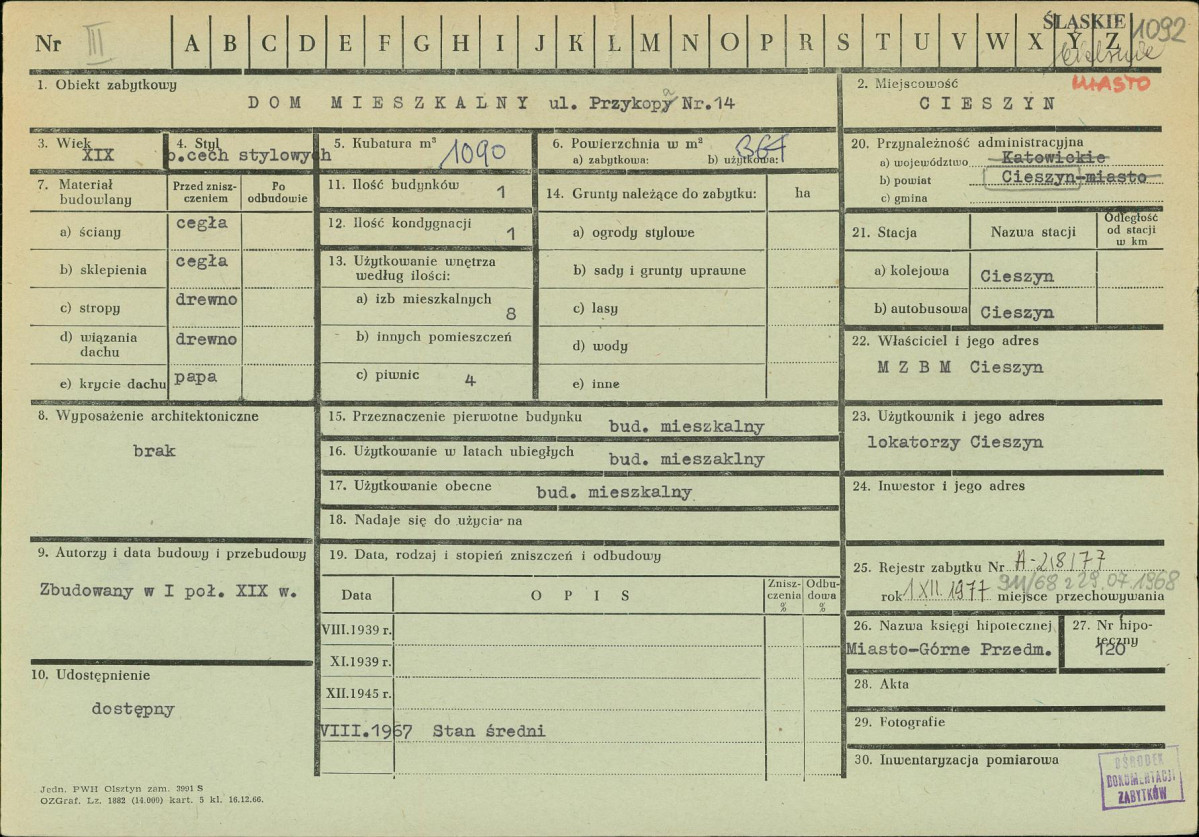 Nr III A B C D E F G H I J K L M N O P R S T U V W X Y Z
ŚLĄSKIE
1092
MIASTO
1. Obiekt zabytkowy
DOM MIESZKALNY ul. Przykopa Nr.14
2. Miejscowość
CIESZYN
3. Wiek
XIX
4. Styl
b.cech stylowych
5. Kubatura m³
1090
6. Powierzchnia w m²
a) zabytkowa: b) użytkowa:
20. Przynależność administracyjna
a) województwo Katowickie
b) powiat Cieszyn-miasto
c) gmina
7. Materiał budowlany
Przed zniszczeniem
Po odbudowie
a) ściany cegła
b) sklepienia cegła
c) stropy drewno
d) wiązania dachu drewno
e) krycie dachu papa
11. Ilość budynków 1
12. Ilość kondygnacji 1
13. Użytkowanie wnętrza
według ilości:
a) izb mieszkalnych 8
b) innych pomieszczeń
c) piwnic 4
14. Grunty należące do zabytku: ha
a) ogrody stylowe
b) sady i grunty uprawne
c) lasy
d) wody
e) inne
21. Stacja
Nazwa stacji
Odległość
od stacji
w km
a) kolejowa Cieszyn
b) autobusowa Cieszyn
22. Właściciel i jego adres
M Z B M Cieszyn
8. Wyposażenie architektoniczne
brak
15. Przeznaczenie pierwotne budynku bud. mieszkalny
16. Użytkowanie w latach ubiegłych bud. mieszaklny
17. Użytkowanie obecne bud. mieszkalny
18. Nadaje się do użycia na
23. Użytkownik i jego adres
lokatorzy Cieszyn
24. Inwestor i jego adres
9. Autorzy i data budowy i przebudowy
Zbudowany w I poł. XIX w.
19. Data, rodzaj i stopień zniszczeń i odbudowy
Data
OPIS
Zniszczenia %
Odbudowa %
VIII.1939 r.
XI.1939 r.
XII.1945 r.
VIII.1967 Stan średni
25. Rejestr zabytku Nr A-218/77
911/68 z 29.07.1968
rok 1 XII. 1977 miejsce przechowywania
26. Nazwa księgi hipotecznej
Miasto-Górne Przedm.
27. Nr hipoteczny
120
10. Udostępnienie
dostępny
28. Akta
29. Fotografie
30. Inwentaryzacja pomiarowa
OŚRODEK
DOKUMENTACJI
ZABYTKÓW
Jedn. PWH Olsztyn zam. 3991 S
OZGraf. Lz. 1882 (14.000) kart. 5 kl. 16.12.66.